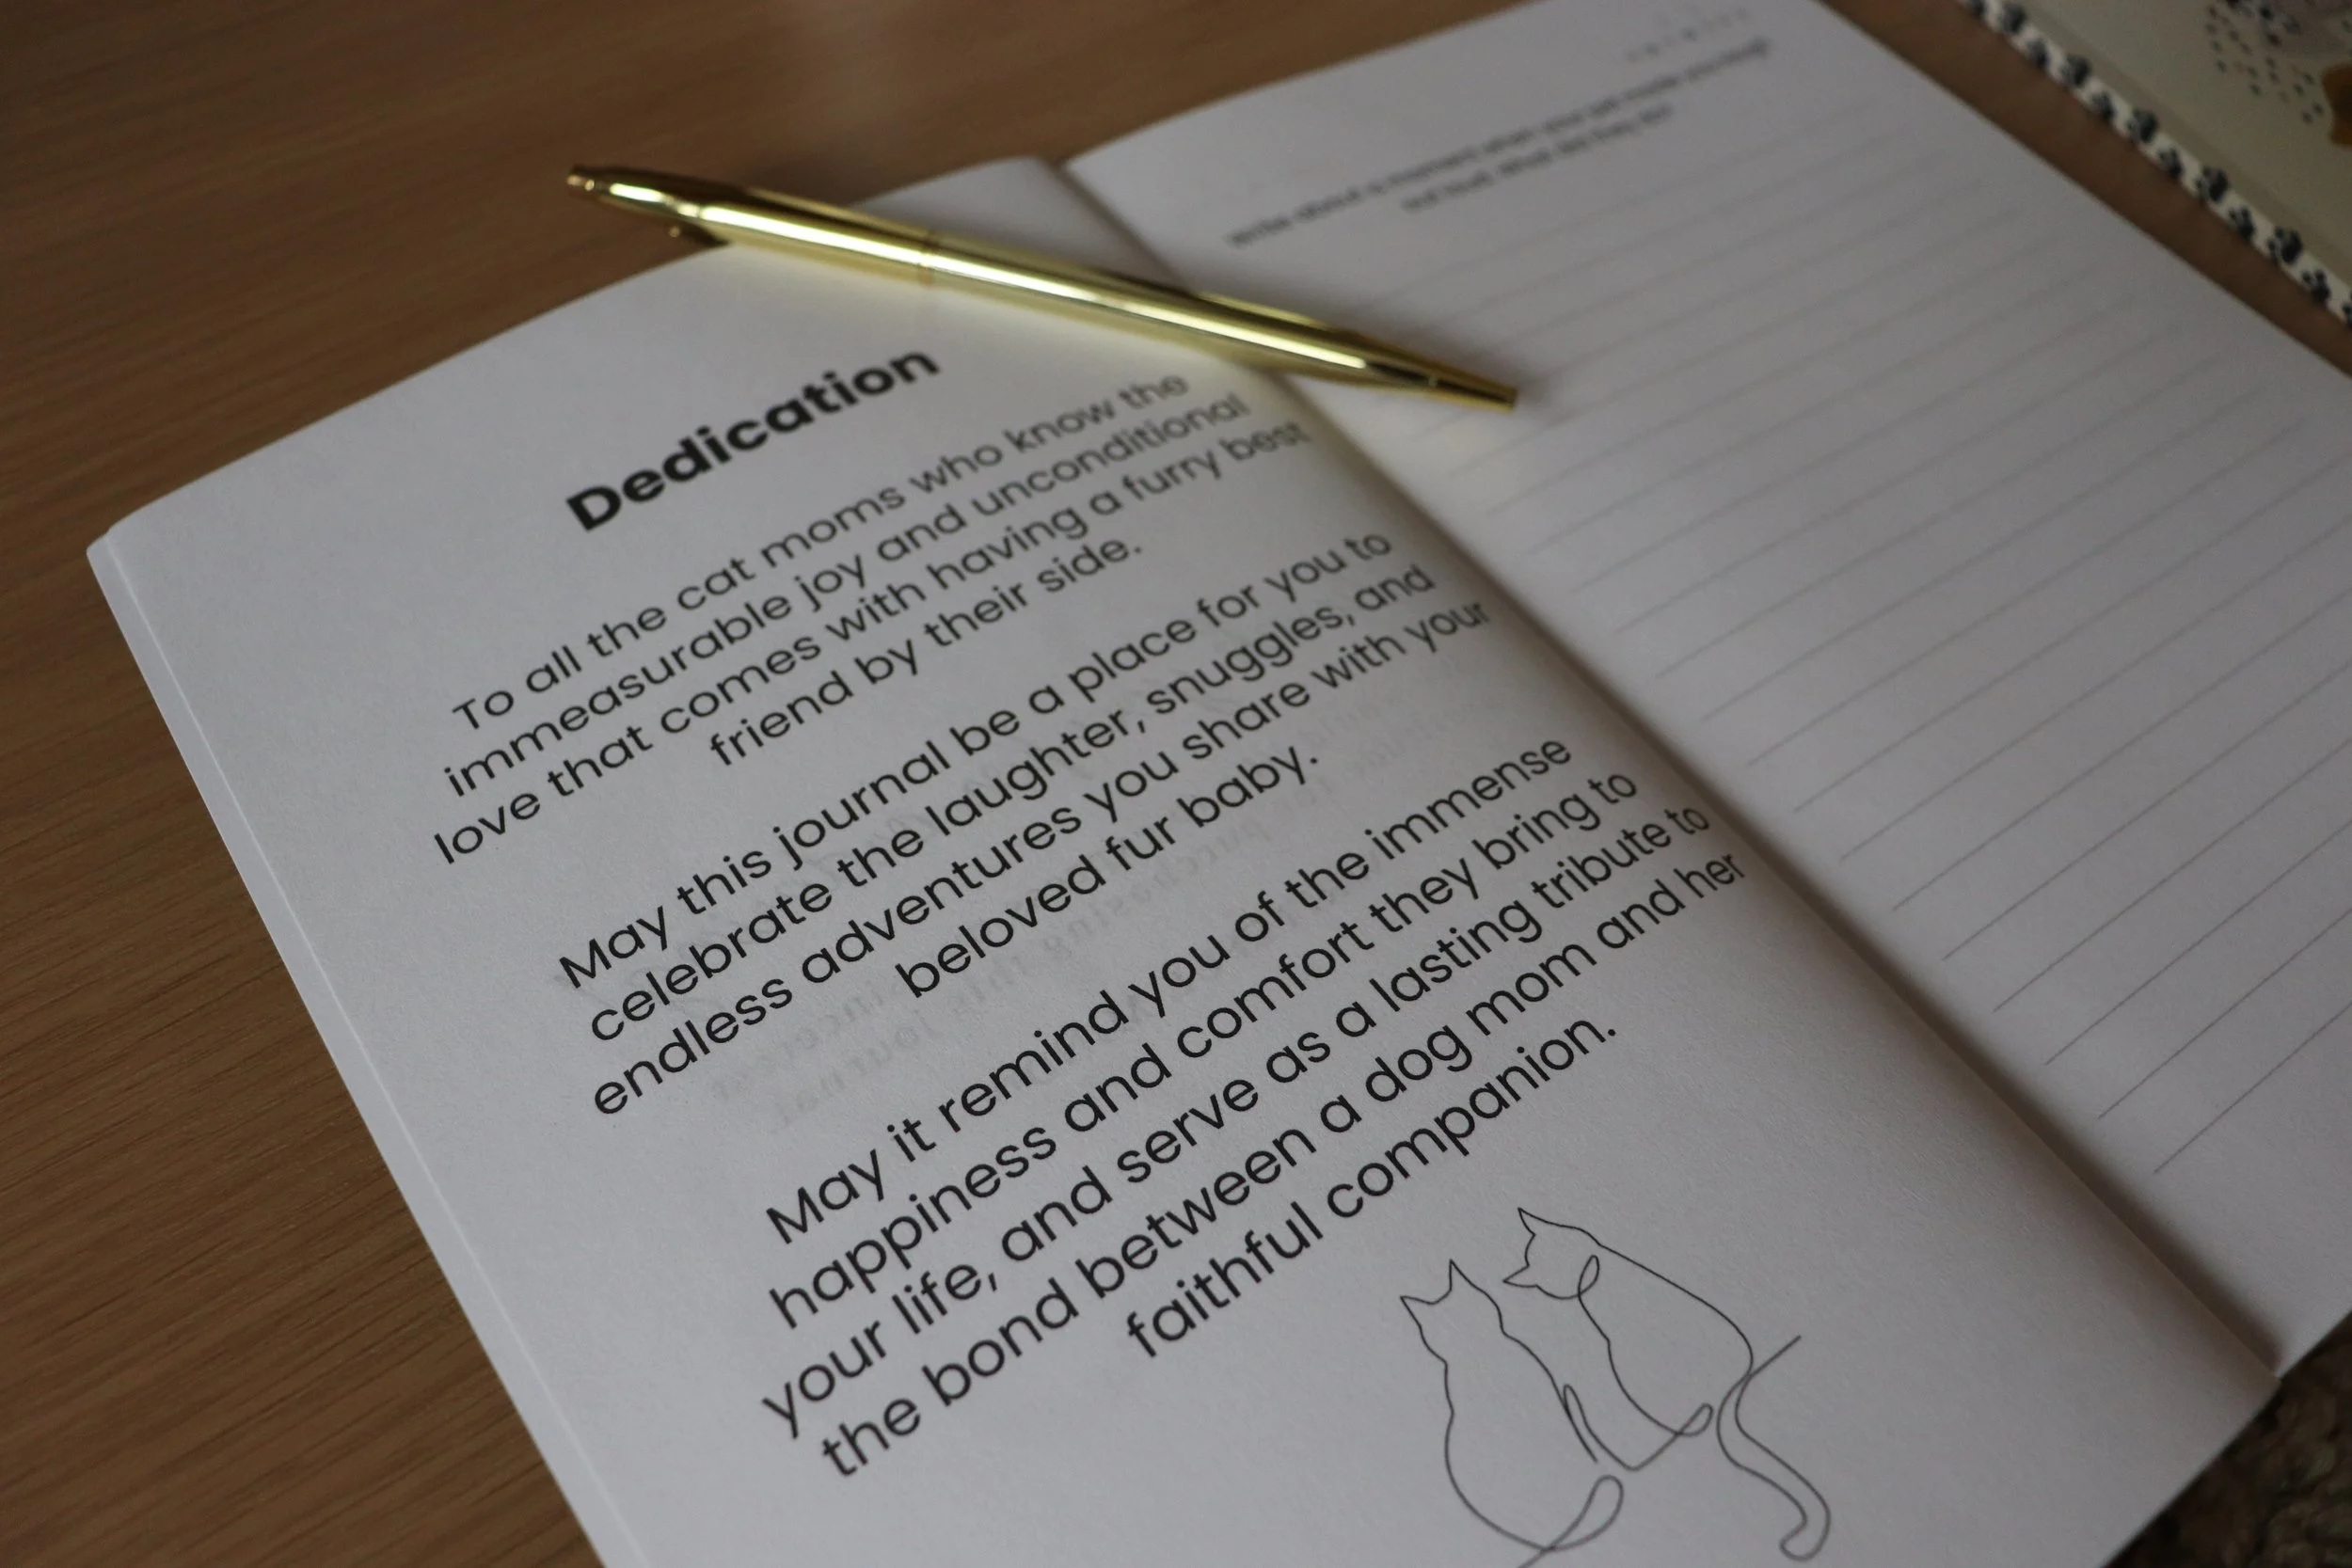 Dedication
To all the cat moms who know the
immeasurable joy and unconditional
love that comes with having a furry best
friend by their side.
May this journal be a place for you to
celebrate the laughter, snuggles, and
endless adventures you share with your
beloved fur baby.
May it remind you of the immense
happiness and comfort they bring to
your life, and serve as a lasting tribute to
the bond between a dog mom and her
faithful companion.
Write about a moment when your cat made you laugh
out loud. What did they do?